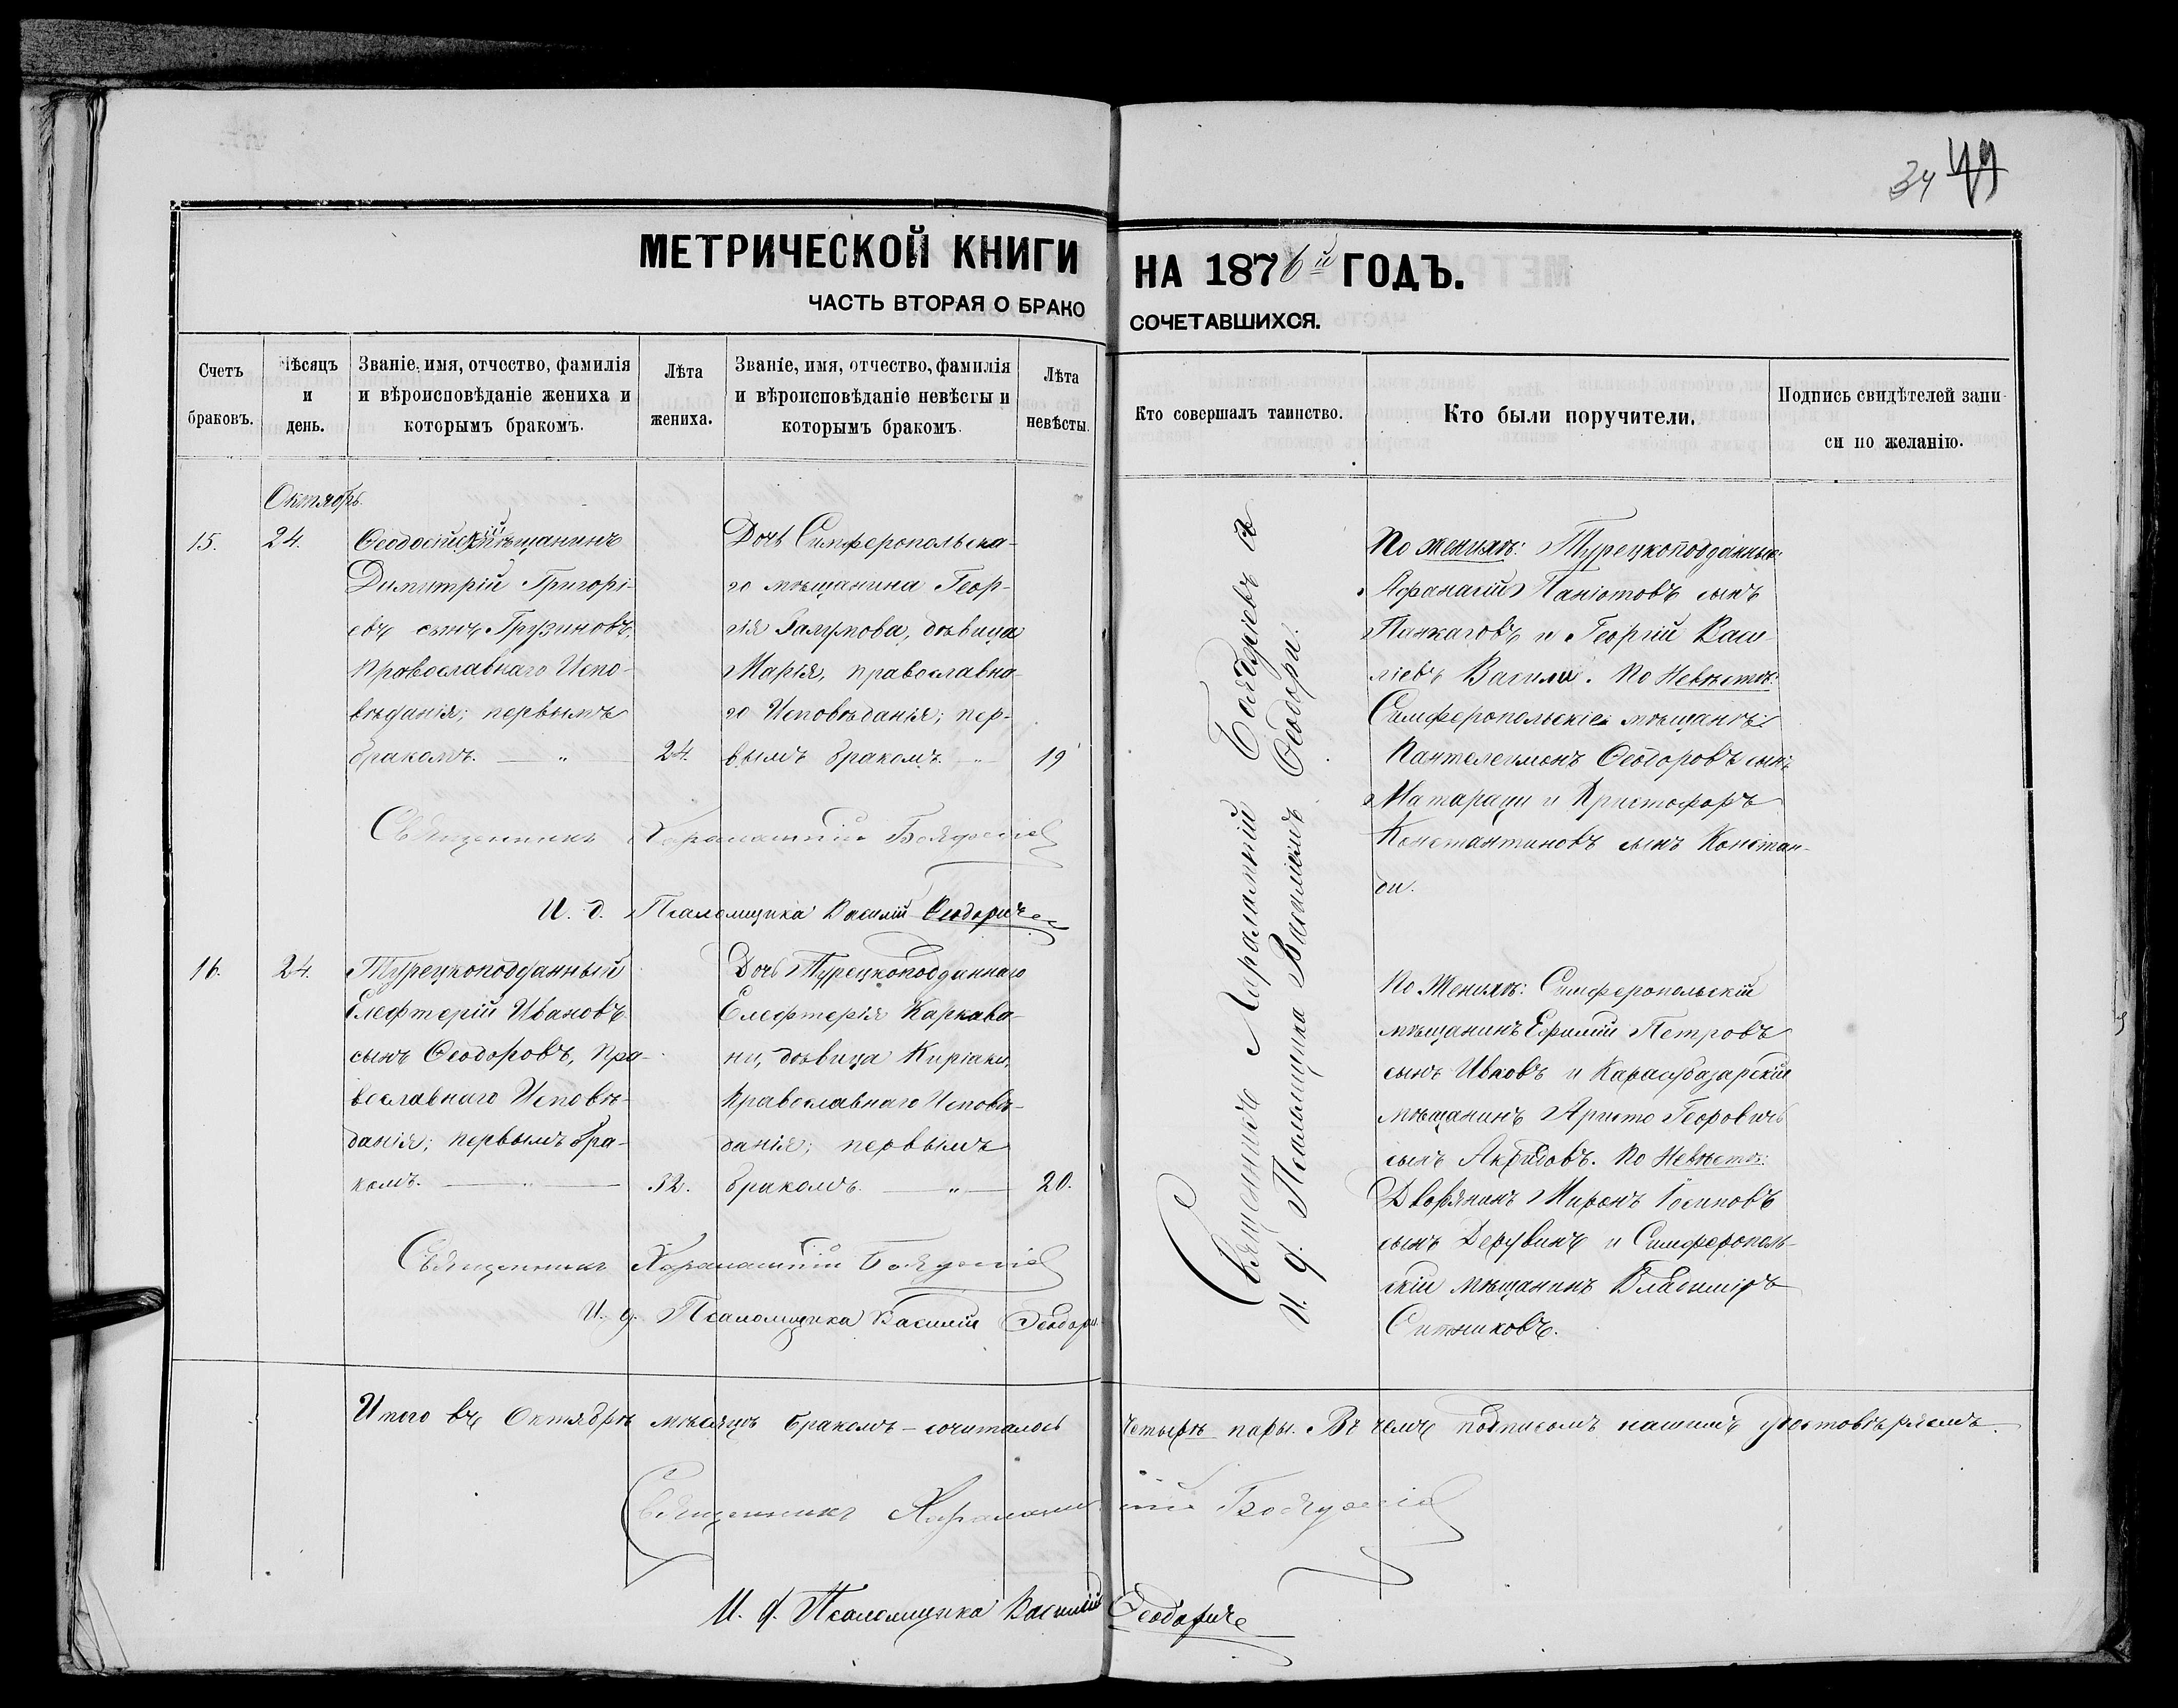 34 49
МЕТРИЧЕСКОЙ КНИГИ НА 1876й ГОДЪ.
ЧАСТЬ ВТОРАЯ О БРАКОСОЧЕТАВШИХСЯ.
Счетъ браковъ.
Мѣсяцъ и день.
Званіе, имя, отчество, фамилія и вѣроисповѣданіе жениха и которымъ бракомъ.
Лѣта жениха.
Званіе, имя, отчество, фамилія и вѣроисповѣданіе невѣсты и которымъ бракомъ.
Лѣта невѣсты.
Кто совершалъ таинство.
Кто были поручители.
Подпись свидѣтелей записи по желанію.
Октябрь.
15.
24.
Ѳеодосійскій мѣщанинъ
Димитрій Григорі-
евъ сынъ Грузиновъ,
Православнаго Испо-
вѣданія; первымъ
бракомъ. — „ —
24.
Дочь Симферопольска-
го мѣщанина Геор-
гія, дѣвица
Марія, православна-
го Исповѣданія; пер-
вымъ бракомъ. „
19
Священникъ Харалампій
И. д. Псаломщика Василій Ѳеодори
Священникъ Харалампій
И. д. Псальмщика Василій Ѳеодори.
По женихѣ: Турецкоподданные:
Афанасій Паніотовъ сынъ
и Георгій Васи-
ліевъ Васили. По Невѣстѣ:
Симферопольскіе мѣщане:
Пантелеимонъ Ѳеодоровъ сынъ
и Христофоръ
Константиновъ сынъ Констан-
ди.
16.
24.
Турецкоподданный
Елефтерій Ивановъ
сынъ Ѳеодоровъ, Пра-
вославнаго Исповѣ-
данія; первымъ бра-
комъ. — „ —
32.
Дочь Турецкоподданнаго
Елефтерія Каркава-
ни, дѣвица Киріаки,
Православнаго Исповѣ-
данія; первымъ
бракомъ. — „ —
20.
По Женихѣ: Симферопольскій
мѣщанинъ Ефимій Петровъ
сынъ Ивковъ и Карасубазарскій
мѣщанинъ Христо
сынъ. По Невѣстѣ:
Дворянинъ Миронъ Іосиповъ
сынъ и Симферополь-
скій мѣщанинъ Владиміръ
Ситниковъ.
Священникъ Харалампій
И. д. Псаломщика Василій Ѳеодори
Итого въ Октябрѣ мѣсяцѣ бракомъ – сочиталось четырѣ пары. Въ чемъ подписомъ нашимъ удостовѣряемъ.
Священникъ Харалампій
И. д. Псаломщика Василій Ѳеодори